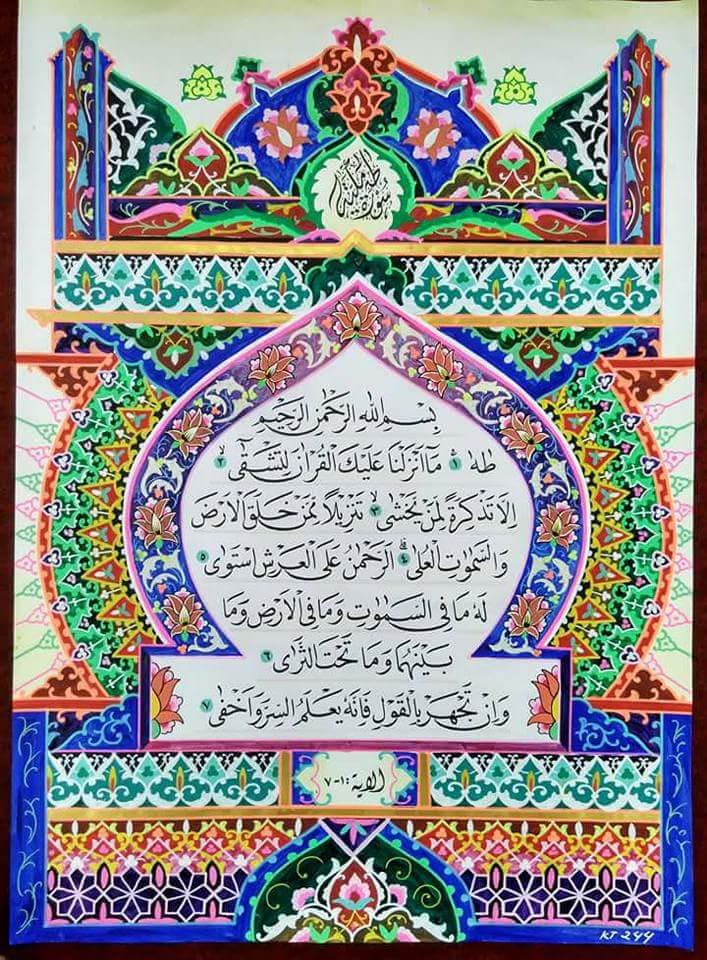 سورة طه مكية
بِسْمِ اللهِ الرَّحْمٰنِ الرَّحِيْمِ
طٰهٰ ۱ مَا اَنْزَلْنَا عَلَيْكَ الْقُرْاٰنَ لِتَشْقٰٓى ۲
اِلَّا تَذْكِرَةً لِّمَنْ يَّخْشٰى ۳ تَنْزِيْلًا مِّمَّنْ خَلَقَ الْاَرْضَ
وَالسَّمٰوٰتِ الْعُلٰى ۴ اَلرَّحْمٰنُ عَلَى الْعَرْشِ اسْتَوٰى ۵
لَهٗ مَا فِى السَّمٰوٰتِ وَمَا فِى الْاَرْضِ وَمَا
بَيْنَهُمَا وَمَا تَحْتَ الثَّرٰى ۶
وَاِنْ تَجْهَرْ بِالْقَوْلِ فَاِنَّهٗ يَعْلَمُ السِّرَّ وَاَخْفٰى ۷
الاية : ۱-۷
KT 244